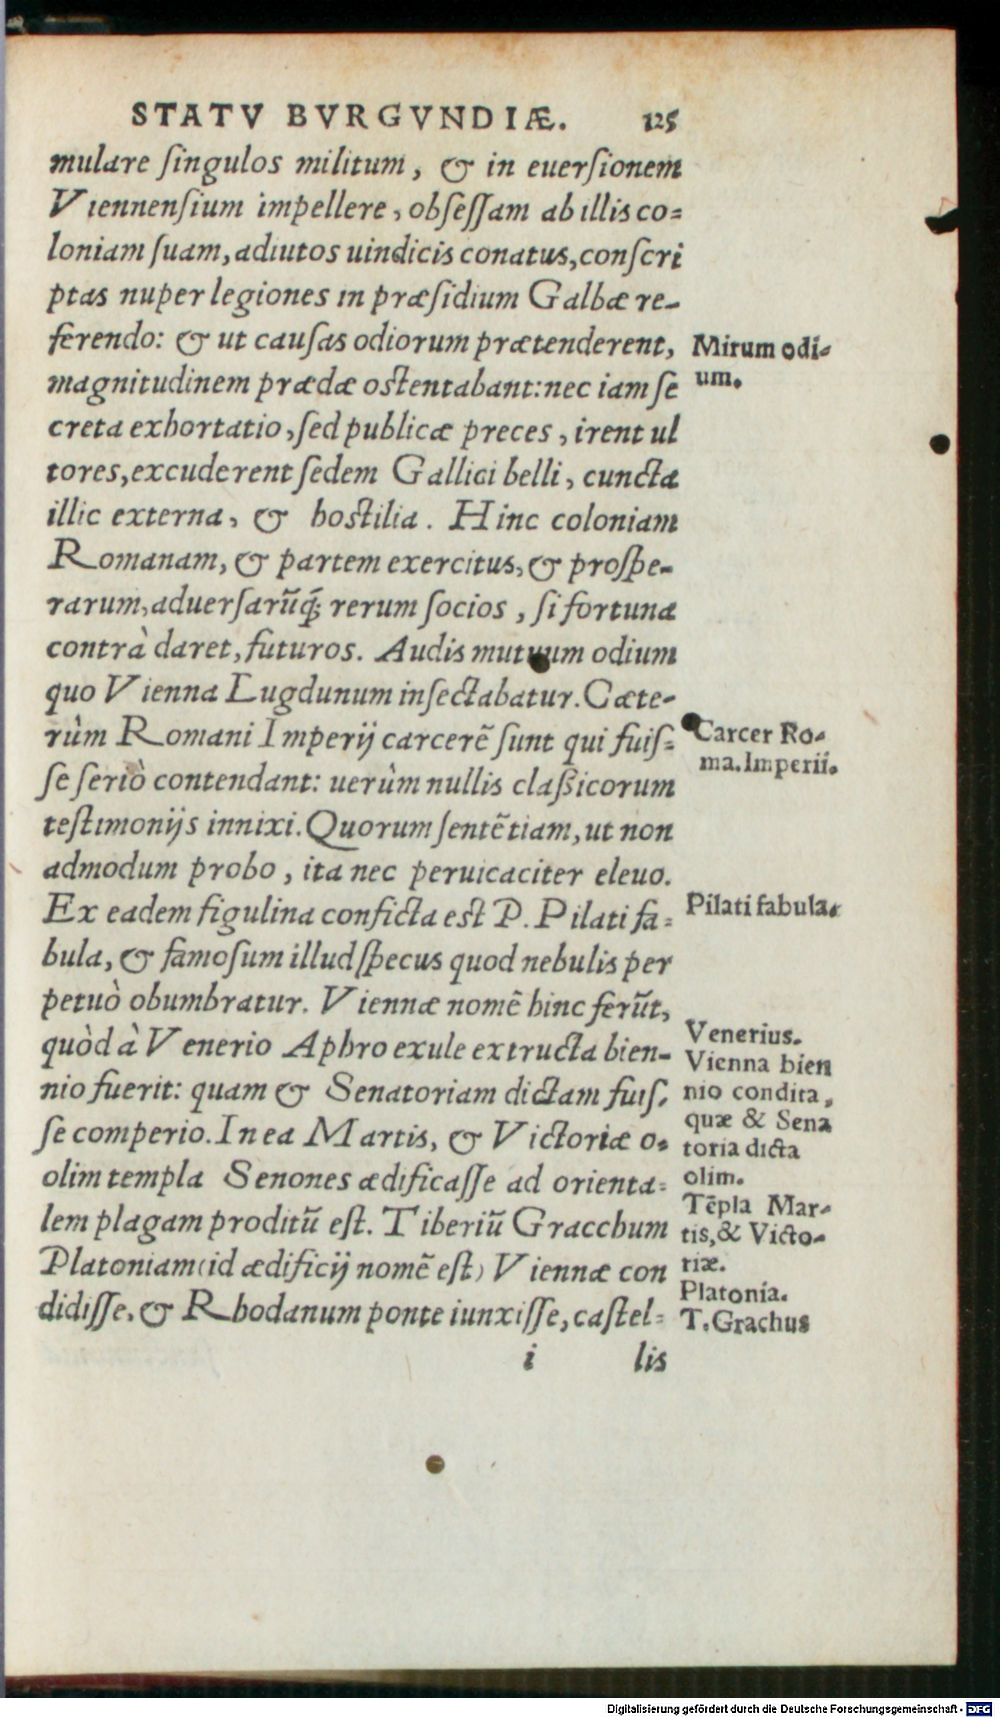 STATV BVRGVNDIÆ. 125
mulare singulos militum, & in euersionem
Viennensium impellere, obsessam ab illis co=
loniam suam, adiutos uindicis conatus, conscri
ptas nuper legiones in præsidium Galbæ re-
ferendo: & ut causas odiorum prætenderent,
magnitudinem prædæ ostentabant: nec iam se
creta exhortatio, sed publicæ preces, irent ul
tores, excuderent sedem Gallici belli, cuncta
illic externa, & hostilia. Hinc coloniam
Romanam, & partem exercitus, & prospe-
rarum, aduersarūq; rerum socios, si fortuna
contrà daret, futuros. Audis mutuum odium
quo Vienna Lugdunum insectabatur. Cæte-
rùm Romani Imperij carcerē sunt qui fuis=
se seriò contendant: uerùm nullis claßicorum
testimonijs innixi. Quorum sentētiam, ut non
admodum probo, ita nec peruicaciter eleuo.
Ex eadem figulina conficta est P. Pilati fa=
bula, & famosum illud specus quod nebulis per
petuò obumbratur. Viennæ nomē hinc ferūt,
quòd à Venerio Aphro exule extructa bien-
nio fuerit: quam & Senatoriam dictam fuis-
se comperio. In ea Martis, & Victoriæ o-
olim templa Senones ædificasse ad orienta=
lem plagam proditū est. Tiberiū Gracchum
Platoniam (id ædificij nomē est) Viennæ con
didisse, & Rhodanum ponte iunxisse, castel=
i lis
Mirum odi-
um.
Carcer Ro-
ma. Imperii.
Pilati fabula.
Venerius.
Vienna bien
nio condita,
quæ & Sena
toria dicta
olim.
Tēpla Mar-
tis, & Victo-
riæ.
Platonia.
T. Grachus
Digitalisierung gefördert durch die Deutsche Forschungsgemeinschaft - DFG